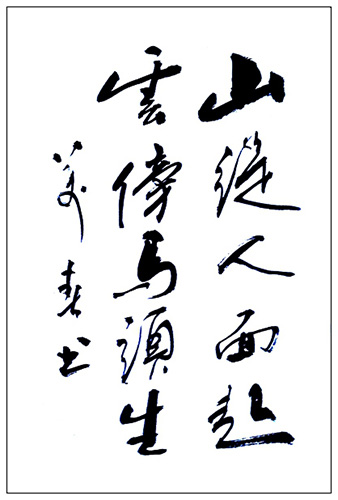 山從人面起
雲傍馬頭生
春书